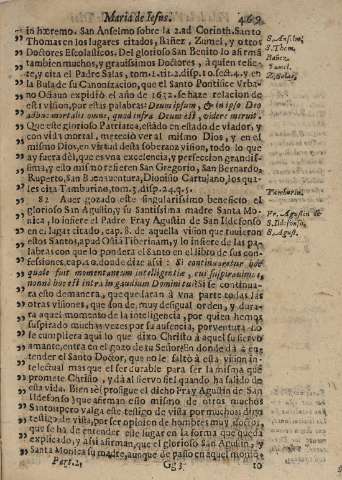 Maria de Iesus. 469
in hæremo. San Anselmo sobre la 2. ad Corinth. Santo
Thomas en los lugares citados, Bañez, Zumel, y otros
Doctores Escolasticos. Del glorioso San Benito lo afirmã
tambien muchos, y grauissimos Doctores, à quien refie-
te, y cita el Padre Salas, tom. 1. tit. 2. disp. 10. sect. 4. y en
la Bula de su Canonizacion, que el Santo Pontifice Vrba-
no Octauo expidiò el año de 1632. se haze relacion de
esta vision, por estas palabras: Deum ipsum, & in ipso Deo
adhuc mortalis omne, quod infra Deum est, videre meruit.
Que este glorioso Patriarca, estando en estado de viador, y
con vida mortal, mereciò ver al mismo Dios, y en el
mismo Dios, en virtud desta soberana vision, todo lo que
ay fuera dèl, que es vna excelencia, y perfeccion grandis-
sima, y esto mismo refieren San Gregorio, San Bernardo,
Ruperto, San Buenaventura, Dionisio Cartujano, los qua-
les cita Tamburino, tom. 3. disp. 24. q. 5.
82 Auer gozado este singularissimo beneficio el
glorioso San Agustin, y su Santissima madre Santa Mo-
nica, lo infiere el Padre Fray Agustin de San Ildefonso
en el lugar citado, cap. 8. de aquella vision que tuuieron
estos Santos, apud Ostia Tiberinam, y lo infiere de las pa-
labras con que lo pondera el Santo en el libro de sus con-
fessiones, cap. 10. donde dize assi: Si continuaretur hoc
quale fuit momentum intelligentiæ, cui suspirauimus,
nonnè hoc est intra in gaudium Domini tui? Si se continua-
ra esto demanera, que quedaràn à vna parte todas las
otras visiones, que son de, muy desigual orden, y dura-
ra aquel momento de la inteligencia, por quien hemos
suspirado muchas vezes por su ausencia, por ventura no
se cumpliera aqui lo que dixo Christo à aquel su siervo
amante, entra en el gozo de tu Señor? En donde dà à en-
tender el Santo Doctor, que no le faltò à esta vision in-
telectual mas que el ser durable para ser la misma que
promete Christo, y dà al siervo fiel quando ha salido de
esta vida. Bien sè (prosigue el dicho Fray Agustin de San
Ildefonso) que afirman esto mismo de otros muchos
Santos; pero valga este testigo de vista por muchos;
testigo de vista, por ser opinion de hombres muy doctos,
que se ha de entender este lugar en la forma que queda
explicado, y assi afirman, que el glorioso San Agustin, y
Santa Monica su madre, aunque de passo en aquel moniẽ-
Part. 2. Gg 3 to
S. Anselm.
S. Thom.
Bañez.
Zumel.
Salas.
Tamburin.
Fr. Agustin de
S. Ildefonso,
S. Agust.